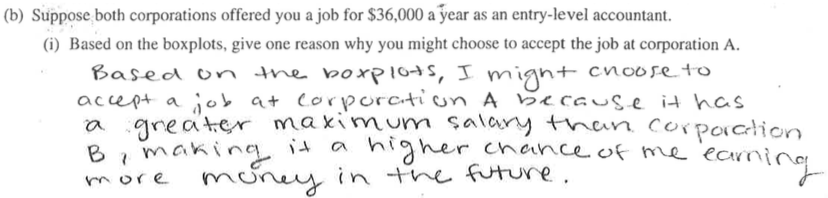 (b) Suppose both corporations offered you a job for $36,000 a year as an entry-level accountant.
(i) Based on the boxplots, give one reason why you might choose to accept the job at corporation A.
Based on the boxplots, I might choose to
accept a job at corporation A because it has
a greater maximum salary than corporation
B, making it a higher chance of me earning
more money in the future.